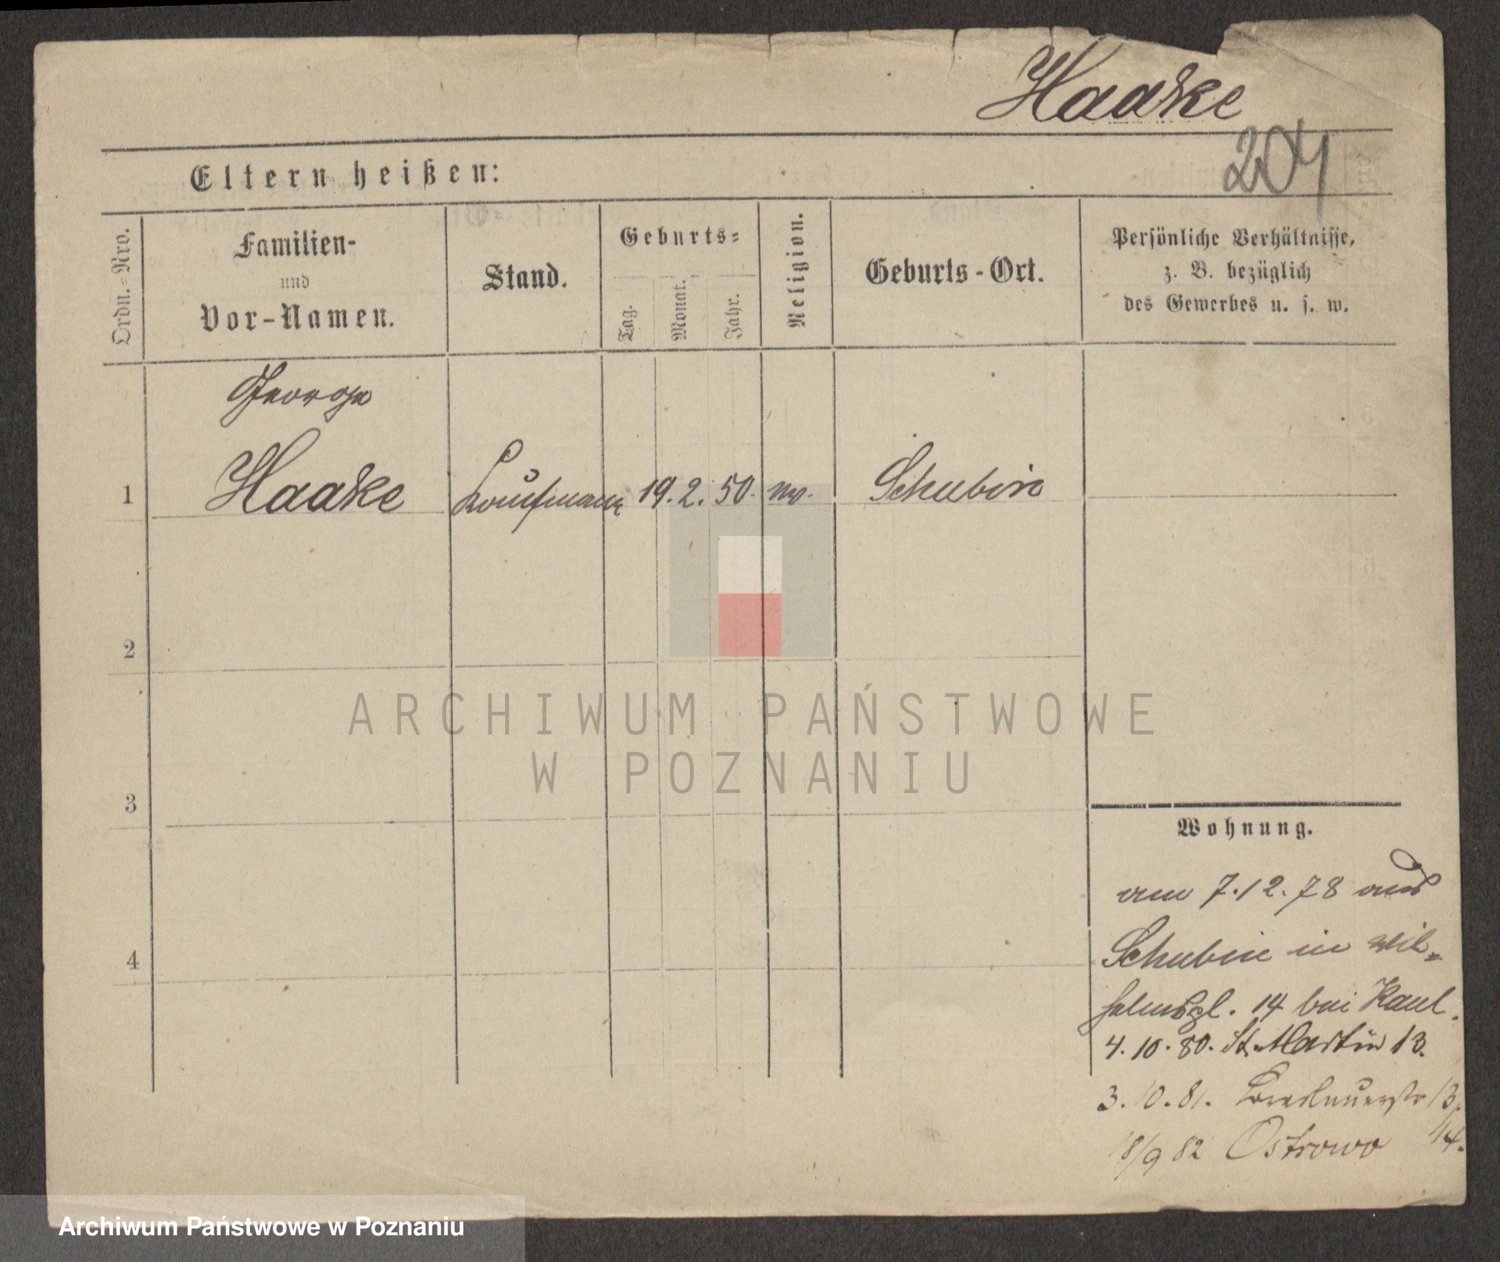 Haake
204
Eltern heißen:
Ordn.-Nro.
Familien-
und
Vor-Namen.
Stand.
Geburts-
Tag.
Monat.
Jahr.
Religion.
Geburts-Ort.
Persönliche Verhältnisse,
z. B. bezüglich
des Gewerbes u. s. w.
George
1 Haake Kaufmann 19. 2. 50. Schubin
2
3
4
Wohnung.
am 7.12.78 aus
Schubin in Wil-
helmspl. 14 bei Kaul.
4.10.80. St. Martin 13.
3.10.81. Breslauerstr 13/14.
18/9 82 Ostrowo
ARCHIWUM PAŃSTWOWE
W POZNANIU
Archiwum Państwowe w Poznaniu